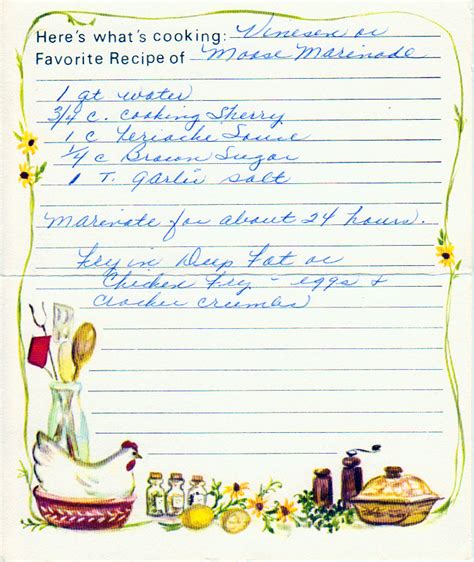 Here's what's cooking: Vinesen or
Favorite Recipe of Moose Marinade
1 qt water
3/4 c. Cooking Sherry
1 c Teriache Sauce
1/4 c Brown Sugar
1 T. Garlic salt
Marinate for about 24 hours.
Fry in Deep Fat or
Chicken Fry - eggs &
Cracker crumbs